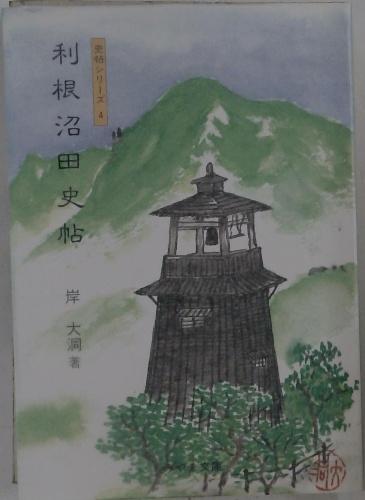 利根沼田史帖
史帖シリーズ 4
岸 大洞著
みやま文庫